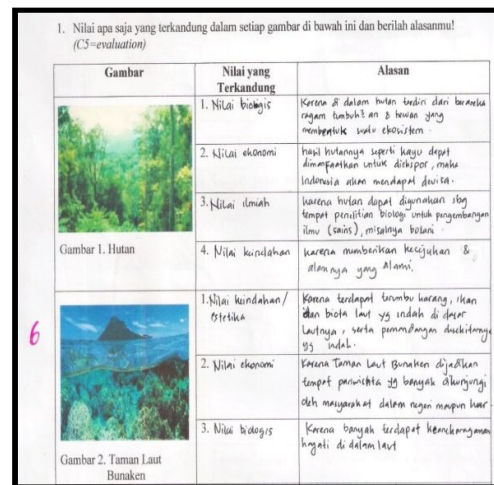 1. Nilai apa saja yang terkandung dalam setiap gambar di bawah ini dan berilah alasanmu!
(C5=evaluation)
Gambar
Nilai yang
Terkandung
Alasan
1. Nilai biologis
Karena di dalam hutan terdiri dari beraneka
ragam tumbuhan & hewan yang
membentuk suatu ekosistem.
2. Nilai ekonomi
hasil hutannya seperti kayu dapat
dimanfaatkan untuk diekspor, maka
Indonesia akan mendapat devisa.
3. Nilai ilmiah
karena hutan dapat digunakan sbg
tempat penilitian biologi untuk pengembangan
ilmu (sains), misalnya botani.
4. Nilai keindahan
karena memberikan kesejukan &
alamnya yang Alami.
Gambar 1. Hutan
6
1. Nilai keindahan/
estetika
Karena terdapat terumbu karang, ikan
dan biota laut yg indah di dasar
lautnya, serta pemandangan disekitarnya
yg indah.
2. Nilai ekonomi
Karena Taman Laut Bunaken dijadikan
tempat pariwisata yg banyak dikunjungi
oleh masyarakat dalam negeri maupun luar
3. Nilai biologis
Karena banyak terdapat keanekaragaman
hayati di dalam laut
Gambar 2. Taman Laut
Bunaken